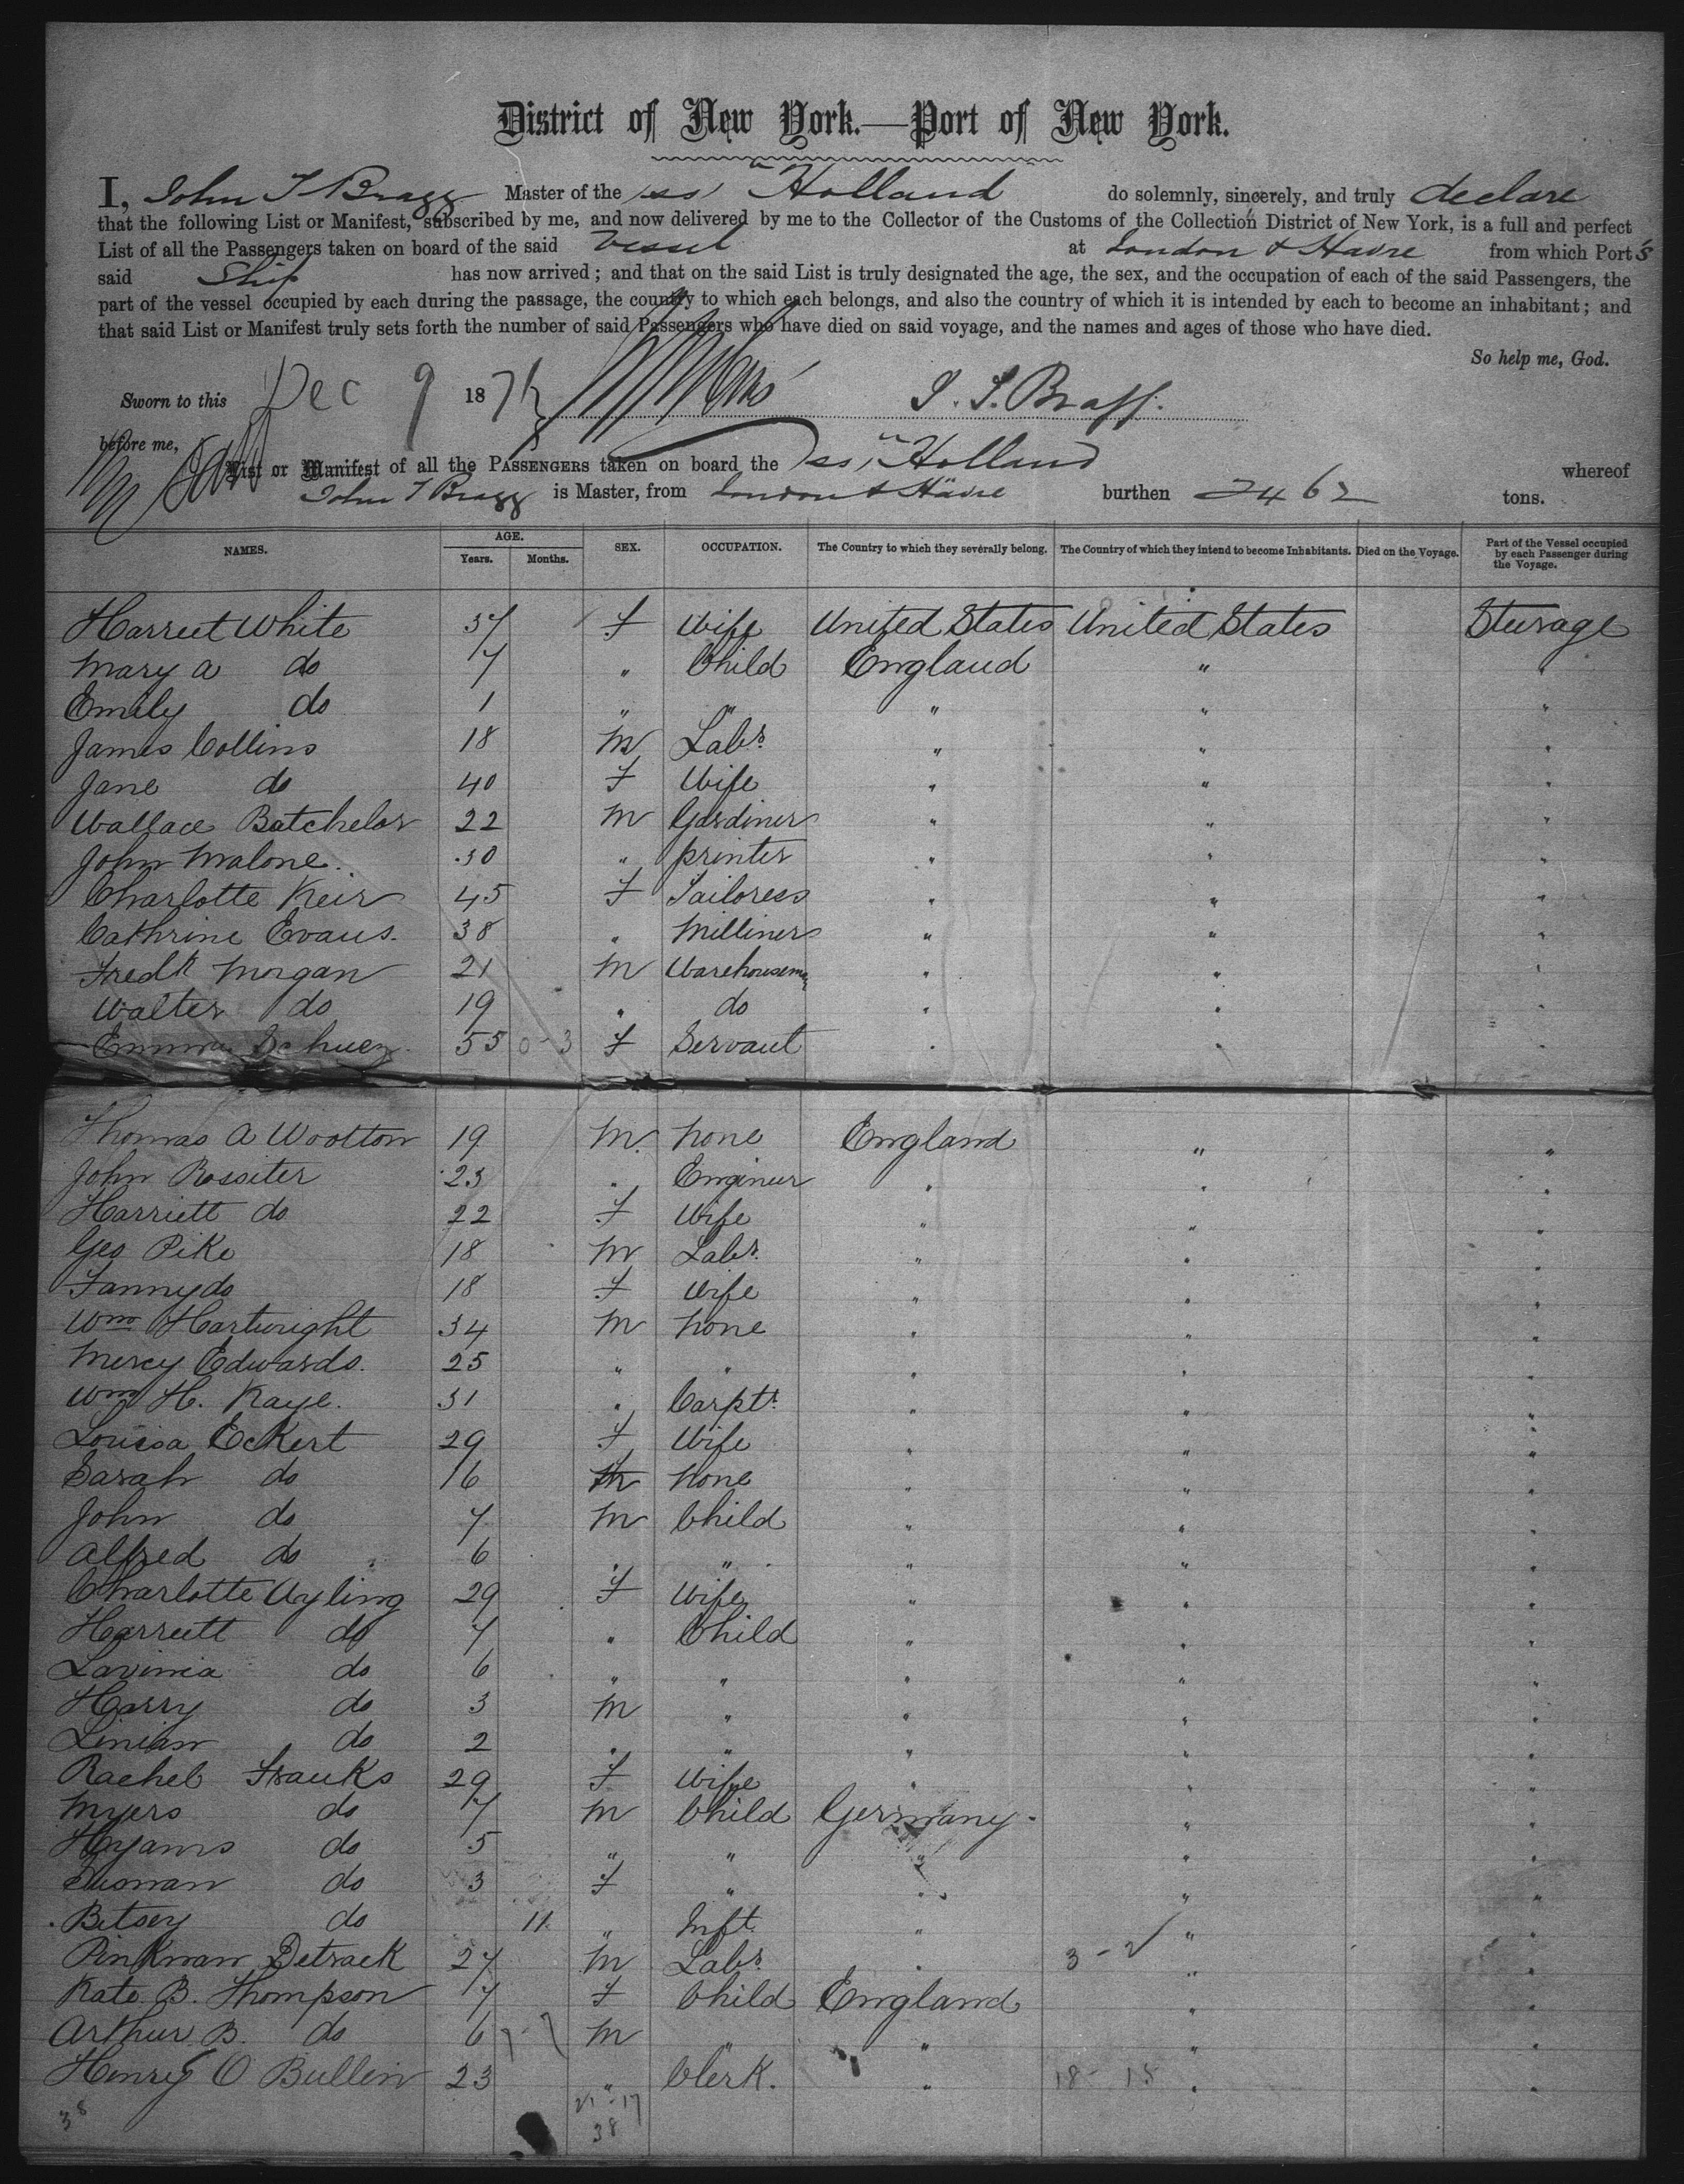 District of New York.—Port of New York.
I, John T Bragg Master of the ss "Holland do solemnly, sincerely, and truly declare
that the following List or Manifest, subscribed by me, and now delivered by me to the Collector of the Customs of the Collection District of New York, is a full and perfect
List of all the Passengers taken on board of the said Vessel at London & Havre from which Port s
said Ship has now arrived; and that on the said List is truly designated the age, the sex, and the occupation of each of the said Passengers, the
part of the vessel occupied by each during the passage, the country to which each belongs, and also the country of which it is intended by each to become an inhabitant; and
that said List or Manifest truly sets forth the number of said Passengers who have died on said voyage, and the names and ages of those who have died.
So help me, God.
Sworn to this Dec 9 187
before me,
List or Manifest of all the PASSENGERS taken on board the ss "Holland whereof
John T Bragg is Master, from London & Havre burthen 2462 tons.
NAMES. AGE. Years. Months. SEX. OCCUPATION. The Country to which they severally belong. The Country of which they intend to become Inhabitants. Died on the Voyage. Part of the Vessel occupied by each Passenger during the Voyage.
Harriet White 37 F Wife United States United States Steerage
Mary A do 7 " Child England " "
Emily do 1 " " " " "
James Collins 18 M Labr. " " "
Jane do 40 F Wife " " "
Wallace Batchelor 22 M Gardiner " " "
John Malone. 30 " printer " " "
Charlotte Keir 45 F Tailoress " " "
Cathrine Evans. 38 " Milliner " " "
Fredk Morgan 21 M Warehouseman " " "
Walter do 19 " do " " "
Emma 55 0-3 F Servant " " "
Thomas A Wootton 19 M. None England " "
John Rossiter 23 " Engineer " " "
Harriett do 22 F Wife " " "
Geo Pike 18 M Labr. " " "
Fanny do 18 F Wife " " "
Wm Hartwright 34 M None " " "
Mercy Edwards. 25 " " " " "
Wm H. Kaye. 31 " Carptr. " " "
Louisa Eckert 29 F Wife " " "
Sarah do 16 None " " "
John do 7 M Child " " "
Alfred do 6 " " " " "
Charlotte Ayling 29 F Wife " " "
Harriett do 7 " Child " " "
Lavinia do 6 " " " " "
Harry do 3 M " " " "
do 2 " " " " "
Rachel Franks 29 F Wife " " "
Myers do 7 M Child Germany " "
Hyams do 5 " " " " "
do 3 F " " " "
Betsey do 11 " Inft. " " "
Pinkman Detrack 27 M Labr. " 3-2 " "
Kate B. Thompson 7 F Child England " "
Arthur B. do 6 M " " " "
Henry O Bullen 23 " Clerk. " 18-15 " "
38 21-17
38